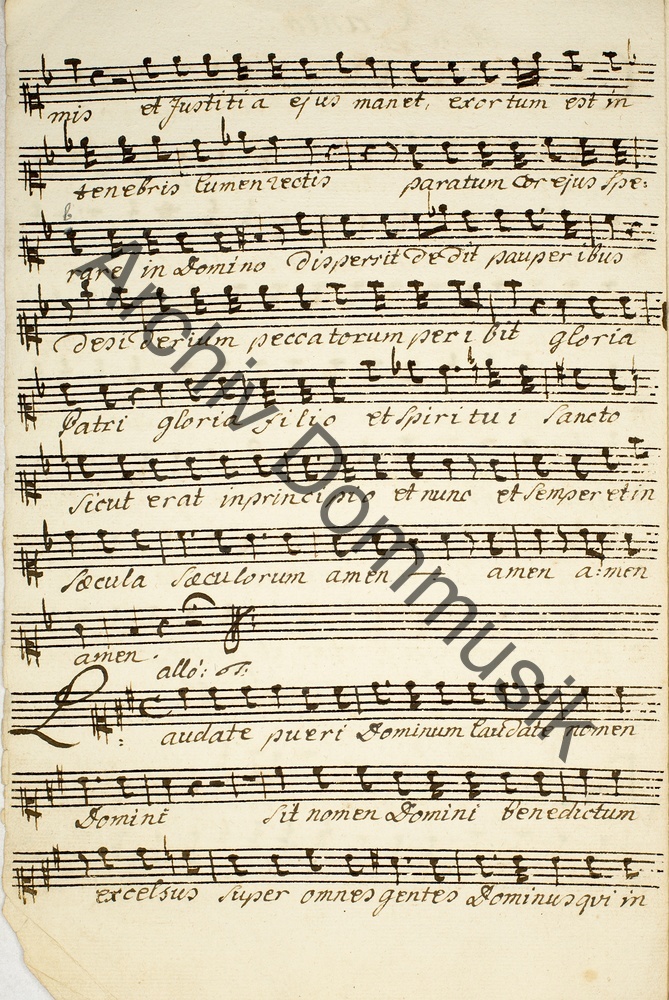 mis et Justitia ejus manet, exortum est in
tenebris lumen rectis paratum Cor ejus Spe:
rare in Domino dispersit dedit pauperibus
desiderium peccatorum peribit gloria
Patri gloria filio et Spiritui Sancto
Sicut erat in principio et nunc et Semper et in
Sæcula Sæculorum amen amen a:men
amen.
allo: T:
Laudate pueri Dominum laudate nomen
Domini Sit nomen Domini benedictum
excelsus Super omnes gentes Dominus qui in
Archiv Dommusik